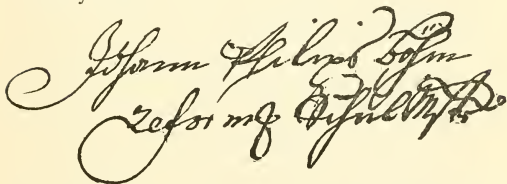 Johann Philips Böhm
Reformh Schulmstr